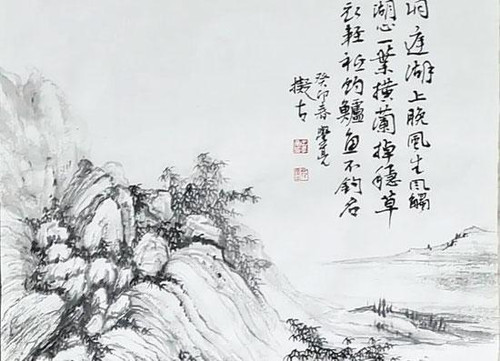 洞庭湖上晚風生風觸
湖心一葉橫蘭棹穩草
衣輕祇釣鱸魚不釣名
癸卯春亮
擬古